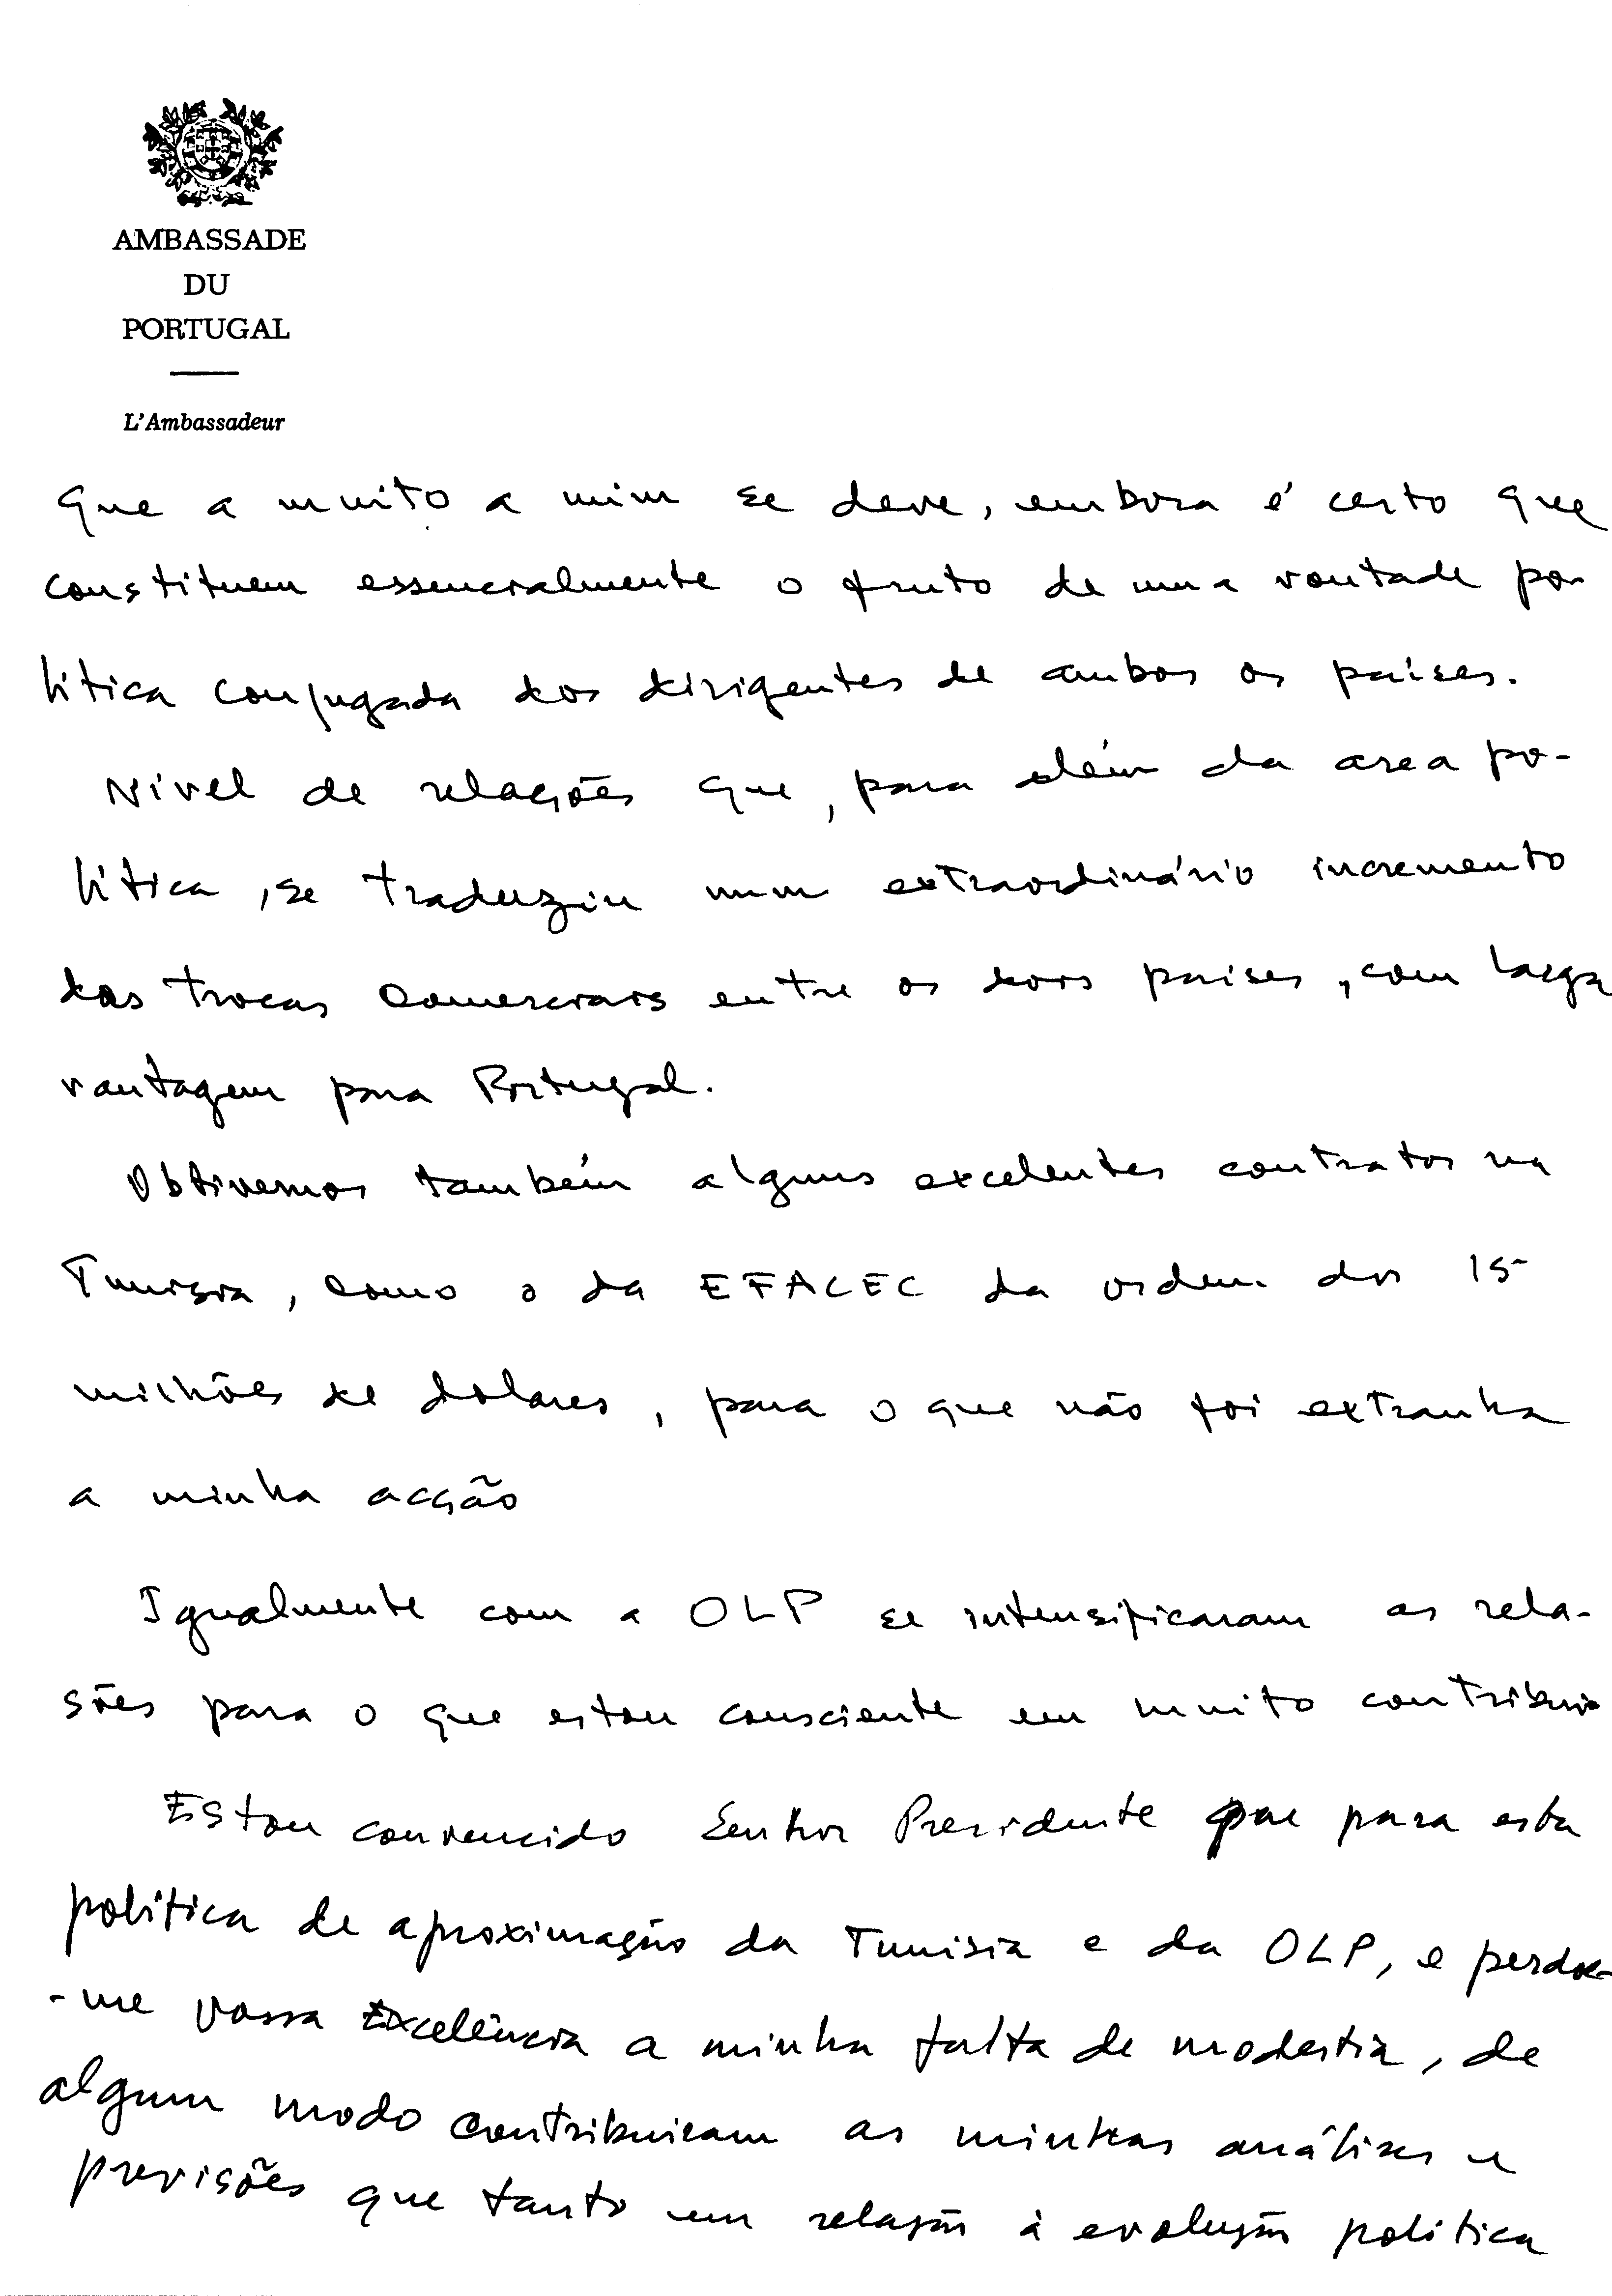 AMBASSADE
DU
PORTUGAL
L'Ambassadeur
que a muito a mim se deve, embora é certo que
constituem essencialmente o fruto de uma vontade po-
lítica conjugada dos dirigentes de ambos os países.
Nível de relações que, para além da area po-
lítica, se traduziu num extraordinário incremento
das trocas comerciais entre os dois países, com larga
vantagem para Portugal.
Obtivemos também alguns excelentes contratos na
Tunisia, como o da EFACEC da ordem dos 15
milhões de dolares, para o que não foi extranha
a minha acção
Igualmente com a OLP se intensificaram as rela-
sões para o que estou consciente em muito contribui
Estou convencido Senhor Presidente que para esta
política de aproximação da Tunisia e da OLP, e perdoe-
-me Vossa Excelência a minha falta de modestia, de
algum modo contribuiram as minhas análises e
previsões que tanto em relação à evolução política